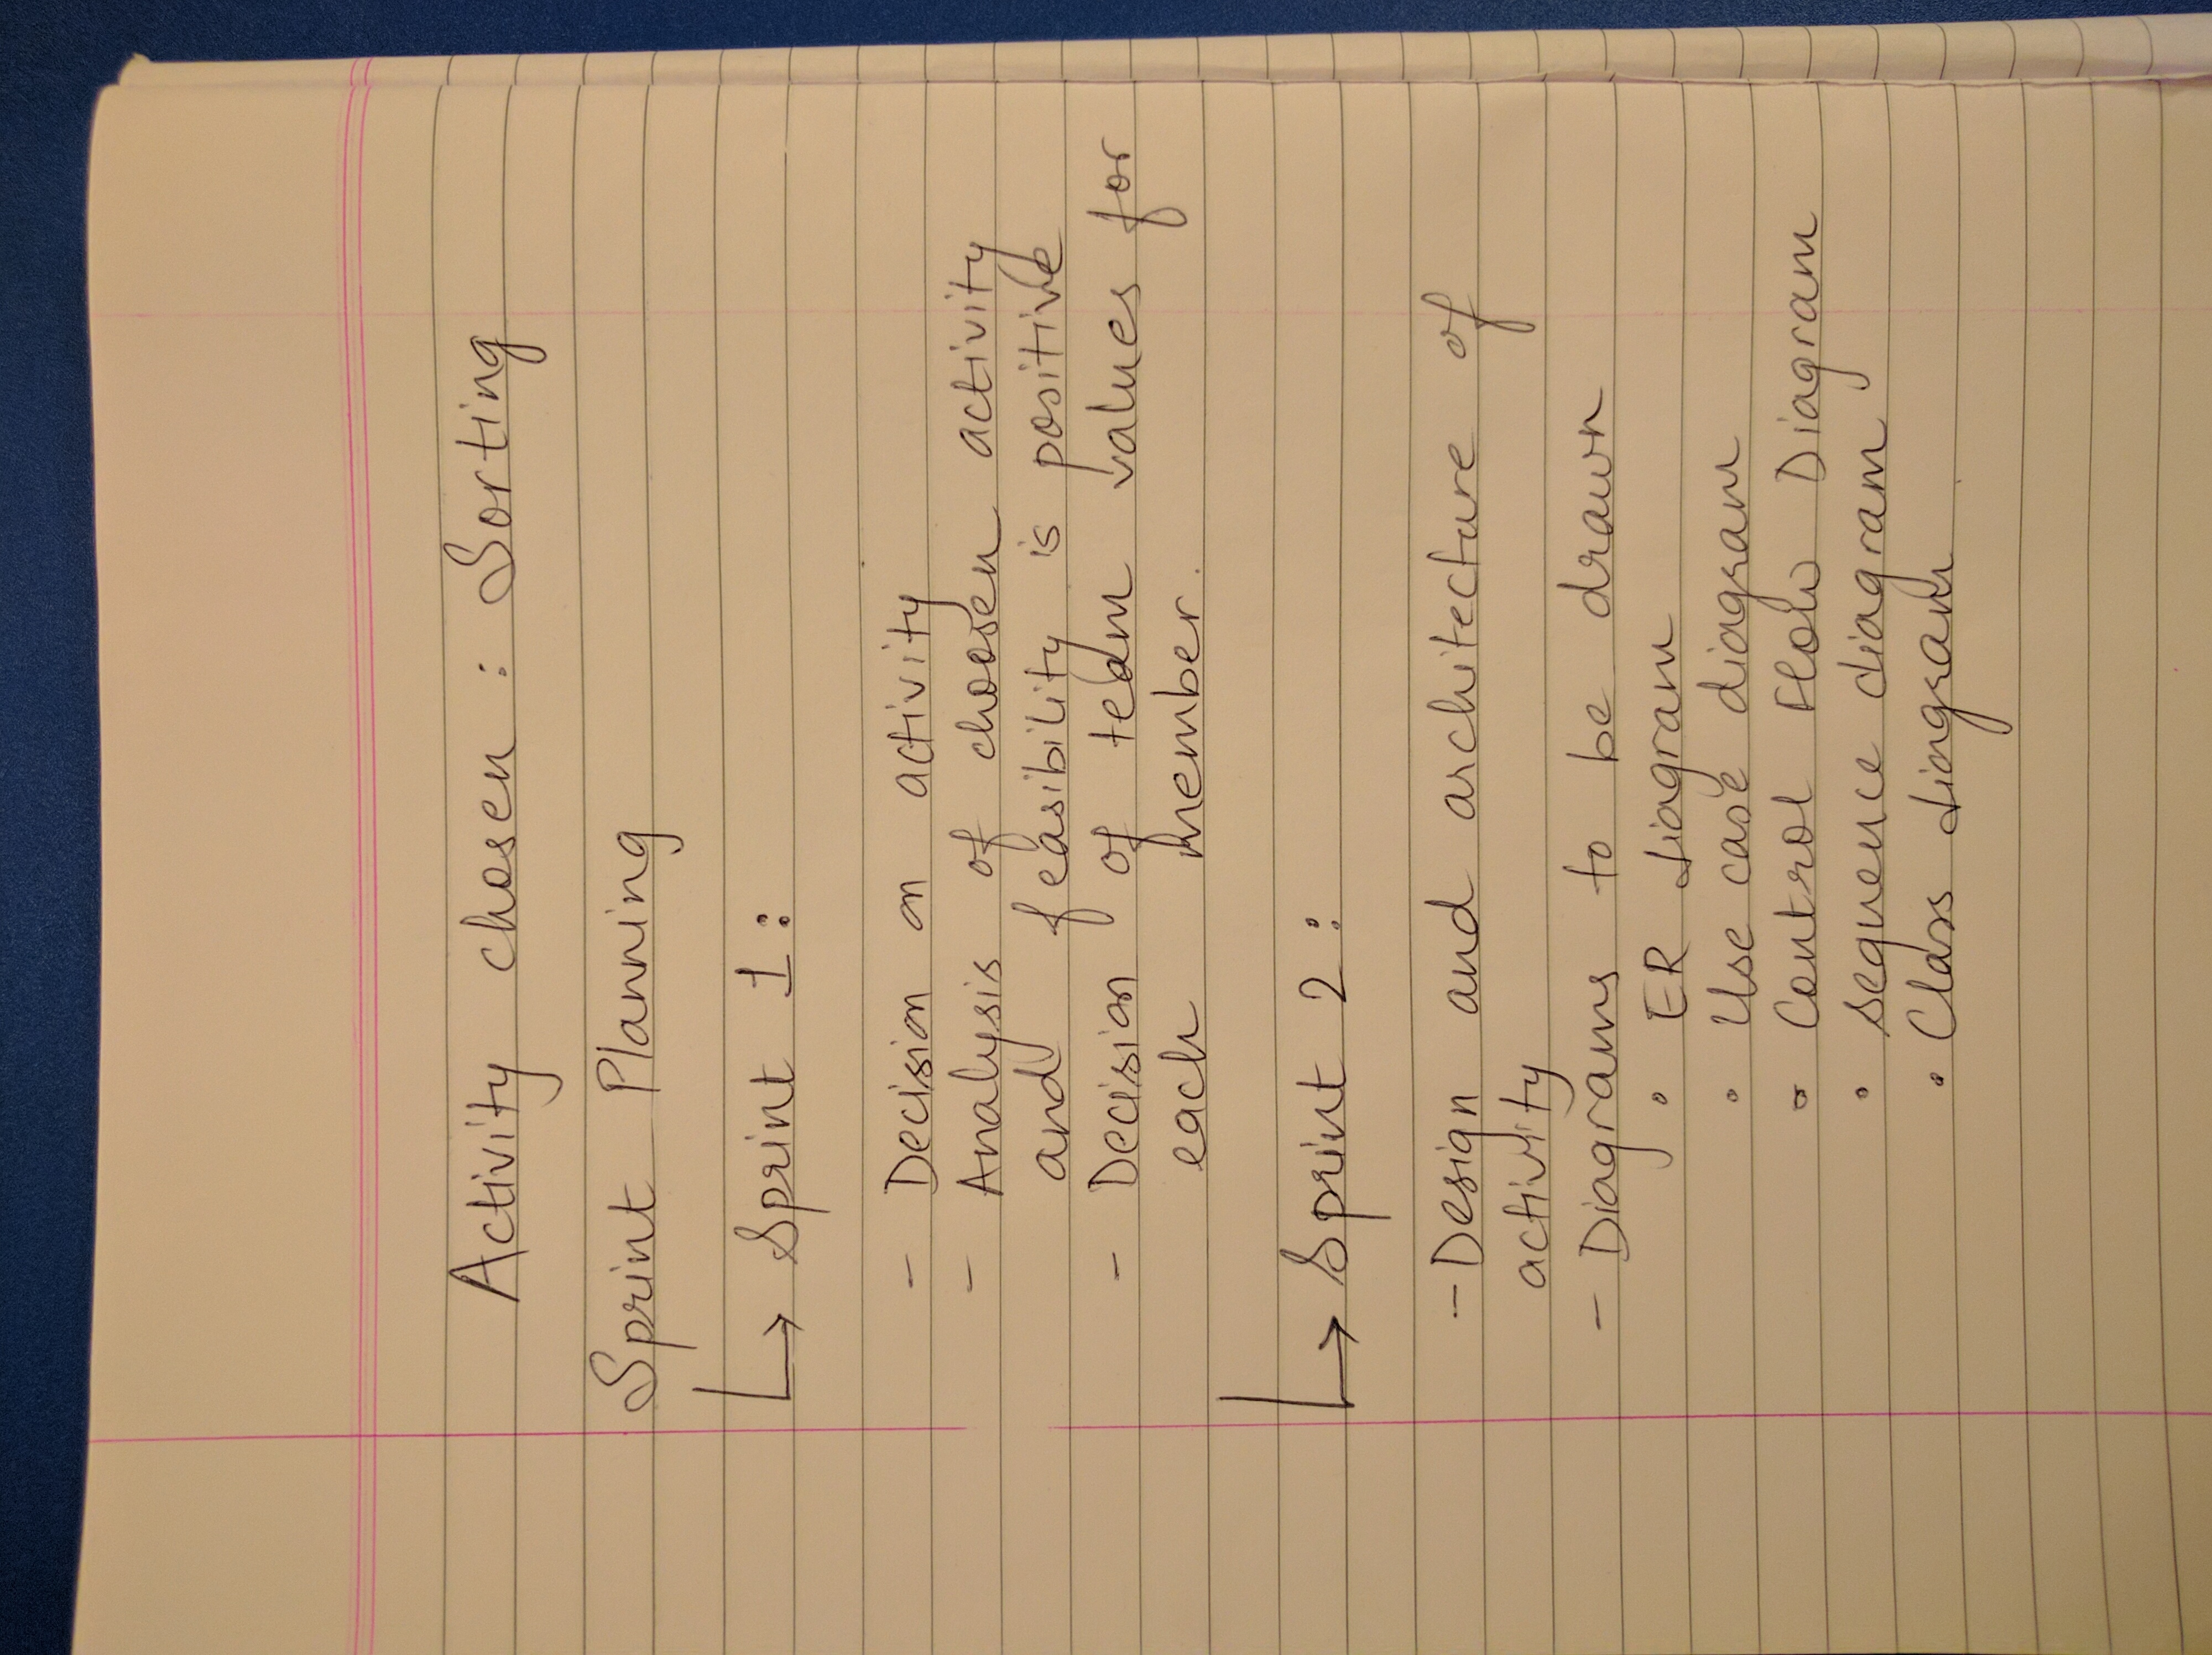 Activity chosen : Sorting
Sprint Planning
↳ Sprint 1 :
- Decision on activity
- Analysis of choosen activity
and feasibility is positive
- Decision of team values for
each member.
↳ Sprint 2 :
- Design and architecture of
activity
- Diagrams to be drawn
• ER diagram
• Use case diagram
• Control Flow Diagram
• sequence diagram
• Class diagram